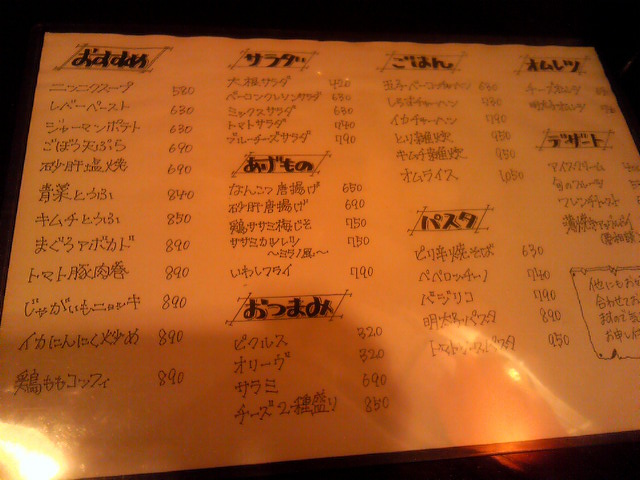 おすすめ
ニンニクスープ 580
レバーペースト 630
ジャーマンポテト 630
ごぼう天ぷら 690
砂肝塩焼 690
青菜とうふ 840
キムチとうふ 850
まぐろアボカド 890
トマト豚肉巻 890
じゃがいもニョッキ 890
イカにんにく炒め 890
鶏ももコンフィ 890
サラダ
大根サラダ
ベーコンクレソンサラダ 630
ミックスサラダ 630
トマトサラダ 740
ブルーチーズサラダ 790
あげもの
なんこつ唐揚げ 650
砂肝唐揚げ 690
鶏ササミ梅じそ 750
ササミカツレツ 750
〜ミラノ風〜
いわしフライ 790
おつまみ
ピクルス 320
オリーヴ 320
サラミ 690
チーズ2種盛り 850
ごはん
玉子ベーコンチャーハン 630
しらすチャーハン 730
イカチャーハン 790
とり雑炊 950
キムチ雑炊 950
オムライス 1,050
パスタ
ピリ辛焼そば 630
ペペロンチーノ 740
バジリコ 790
明太子パスタ 890
トマトソースパスタ 950
オムレツ
チーズオムレツ
明太子オムレツ
デザート
アイスクリーム
旬のフルーツ
フレンチトースト
他にもお
合わせて
お申し